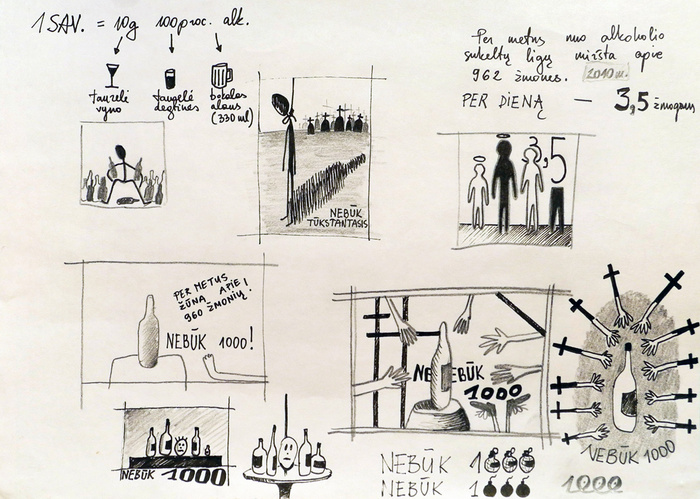 1 SAV. = 10g 100proc. alk.
taurelė
vyno
taurelė
degtinės
bokalas
alaus
(330 ml)
Per metus nuo alkoholio
sukeltų ligų miršta apie
962 žmonės. 2010 m.
PER DIENĄ — 3,5 žmogaus
NEBŪK
TŪKSTANTASIS
3,5
PER METUS
ŽŪNA APIE
960 ŽMONIŲ!
NEBŪK 1000!
NEBŪK
1000
NEBŪK 1000
NEBŪK 1000
NEBŪK 1
NEBŪK 1
1000